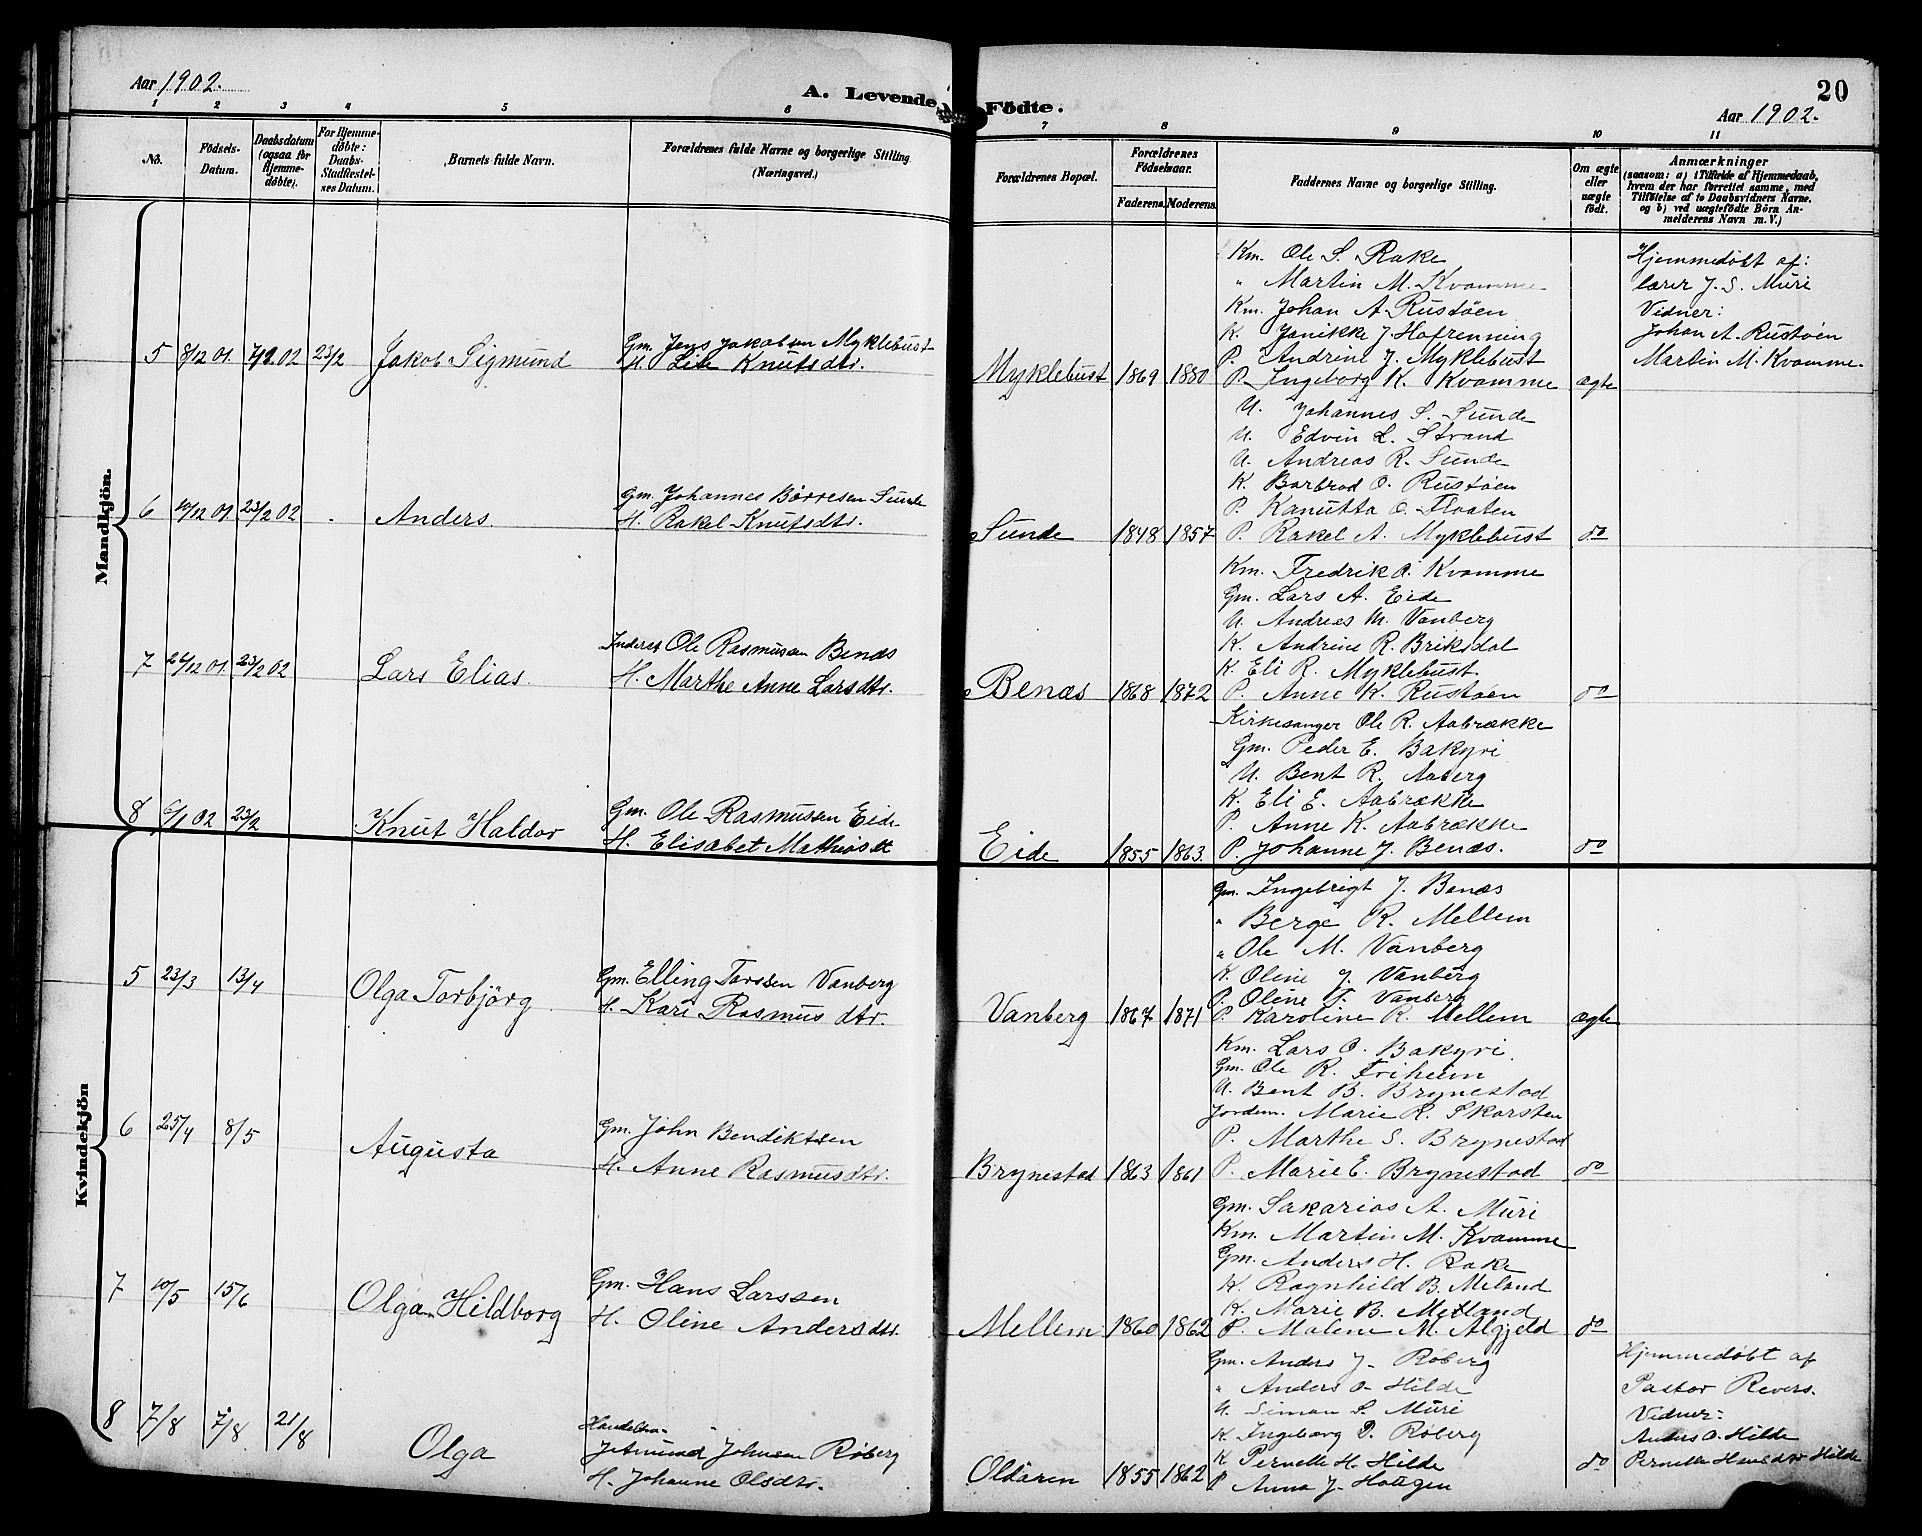 Aar 1902.
A. Levende Födte.
20
Aar 1902.
1 2 3 4 5 6 7 8 9 10 11
No.
Födsels-
Datum.
Daabsdatum
(ogsaa for
Hjemme-
döbte).
For Hjemme-
döbte:
Daabs-
Stadfæstel-
ses Datum.
Barnets fulde Navn.
Forældrenes fulde Navne og borgerlige Stilling.
(Næringsvei.)
Forældrenes Bopæl.
Forældrenes
Födselsaar.
Faderens. Moderens.
Faddernes Navne og borgerlige Stilling.
Om ægte
eller
uægte
födt.
Anmærkninger
(saasom: a) i Tilfælde af Hjemmedaab,
hvem der har forrettet samme, med
Tilföielse af to Daabsvidners Navne,
og b) ved uægtefödte Börn An-
melderens Navn m. V.)
Mandkjön.
5 8/12 01. 02 23/2 Jakob Sigmund
Gm. Jens Jakobsen Myklebust
H. Knutsdtr.
Myklebust 1869 1880
Km. Ole S. Rake
" Martin M. Kvamme
Km. Johan A. Rustöen
K. Janikke J. Hofrenning
P. Andrine J. Myklebust
P. Ingeborg K. Kvamme
ægte
Hjemmedöbt af:
lærer J. S. Muri
Vidner:
Johan A. Rustöen
Martin M. Kvamme.
6 01. 23/2 02 Anders.
Gm. Johannes Börresen Sunde
H. Rakel Knutsdtr.
Sunde 1848 1857
U. Johannes S. Sunde
U. Edvin L. Strand
U. Andreas R. Sunde
K. Barbrod O. Rustöen
P. Kanutta O. Floaten
P. Rakel A. Myklebust
do
7 01. 23/2 02 Lars Elias.
Inderst Ole Rasmussen Benæs
H. Marthe Anne Larsdtr.
Benæs 1868 1872
Km. Fredrik A. Kvamme
Gm. Lars A. Eide
U. Andreas M. Vanberg
K. Andrine R. Briksdal
K. Eli R. Myklebust
P. Anne K. Rustöen
do
8 6/1 02 23/2 Knut Haldor
Gm. Ole Rasmussen Eide
H. Elisabet Mathiasdt
Eide 1855 1863.
Kirkesanger Ole R. Aabrække
Gm. Peder E. Bakyri
U. Bent R. Aaberg
K. Eli E. Aabrække
P. Anne K. Aabrække
P. Johanne J. Benæs.
do
Kvindekjön
5 23/3 13/4 Olga Torbjörg
Gm. Elling Tarssen Vanberg
H. Kari Rasmusdtr.
Vanberg 1867 1871
Gm. Ingebrigt J. Benæs
" Berge R. Mellem
" Ole M. Vanberg
K. Oline J. Vanberg
P. Oline T. Vanberg
P. Karoline R. Mellem
ægte
6 25/4 8/5 Augusta
Gm. John Bendiktsen
H. Anne Rasmusdtr.
Brynestad 1863 1861
Km. Lars O. Bakyri
Gm. Ole R. Friheim
U. Bent B. Brynestad
Jordem. Marie R. Skarsten
P. Marthe S. Brynestad
P. Marie E. Brynestad
do
7 10/5 15/6 Olga Hildborg
Gm. Hans Larssen
H. Oline Andersdtr.
Mellem 1860 1862
Gm. Sakarias A. Muri
Km. Martin M. Kvamme
Gm. Anders H. Rake
K. Ragnhild B. Meland
K. Marie B. Metland
P. Malene M. Algjeld
do
8 7/8 7/8 21/8 Olga
Johnsen Röberg
H. Johanne Olsdtr.
Oldören 1855 1862
Gm. Anders J. Röberg
" Anders O. Hilde
U. Simon S. Muri
K. Ingeborg D. Röberg
K. Pernelle H. Hilde
P. Anna J. Haugen
do
Hjemmedöbt af
Pastor Revers.
Vidner:
Anders O. Hilde
Pernelle Hilde